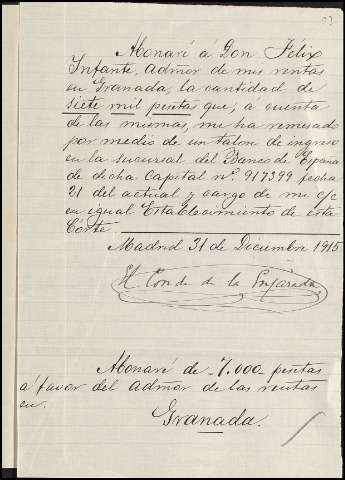 Abonaré á Don Félix
Infante, admor de mis rentas
en Granada, la cantidad de
siete mil pesetas que, a cuenta
de las mismas, me ha remesado
por medio de un talon de ingreso
en la sucursal del Banco de España
de dicha Capital nº 917399 fecha
21 del actual y cargo de mi c/c
en igual Establecimiento de esta
Corte
Madrid 31 de Diciembre 1915
El Conde de la Enjarada
Abonaré de 7.000 pesetas
a favor del admor de las rentas
en.
Granada.